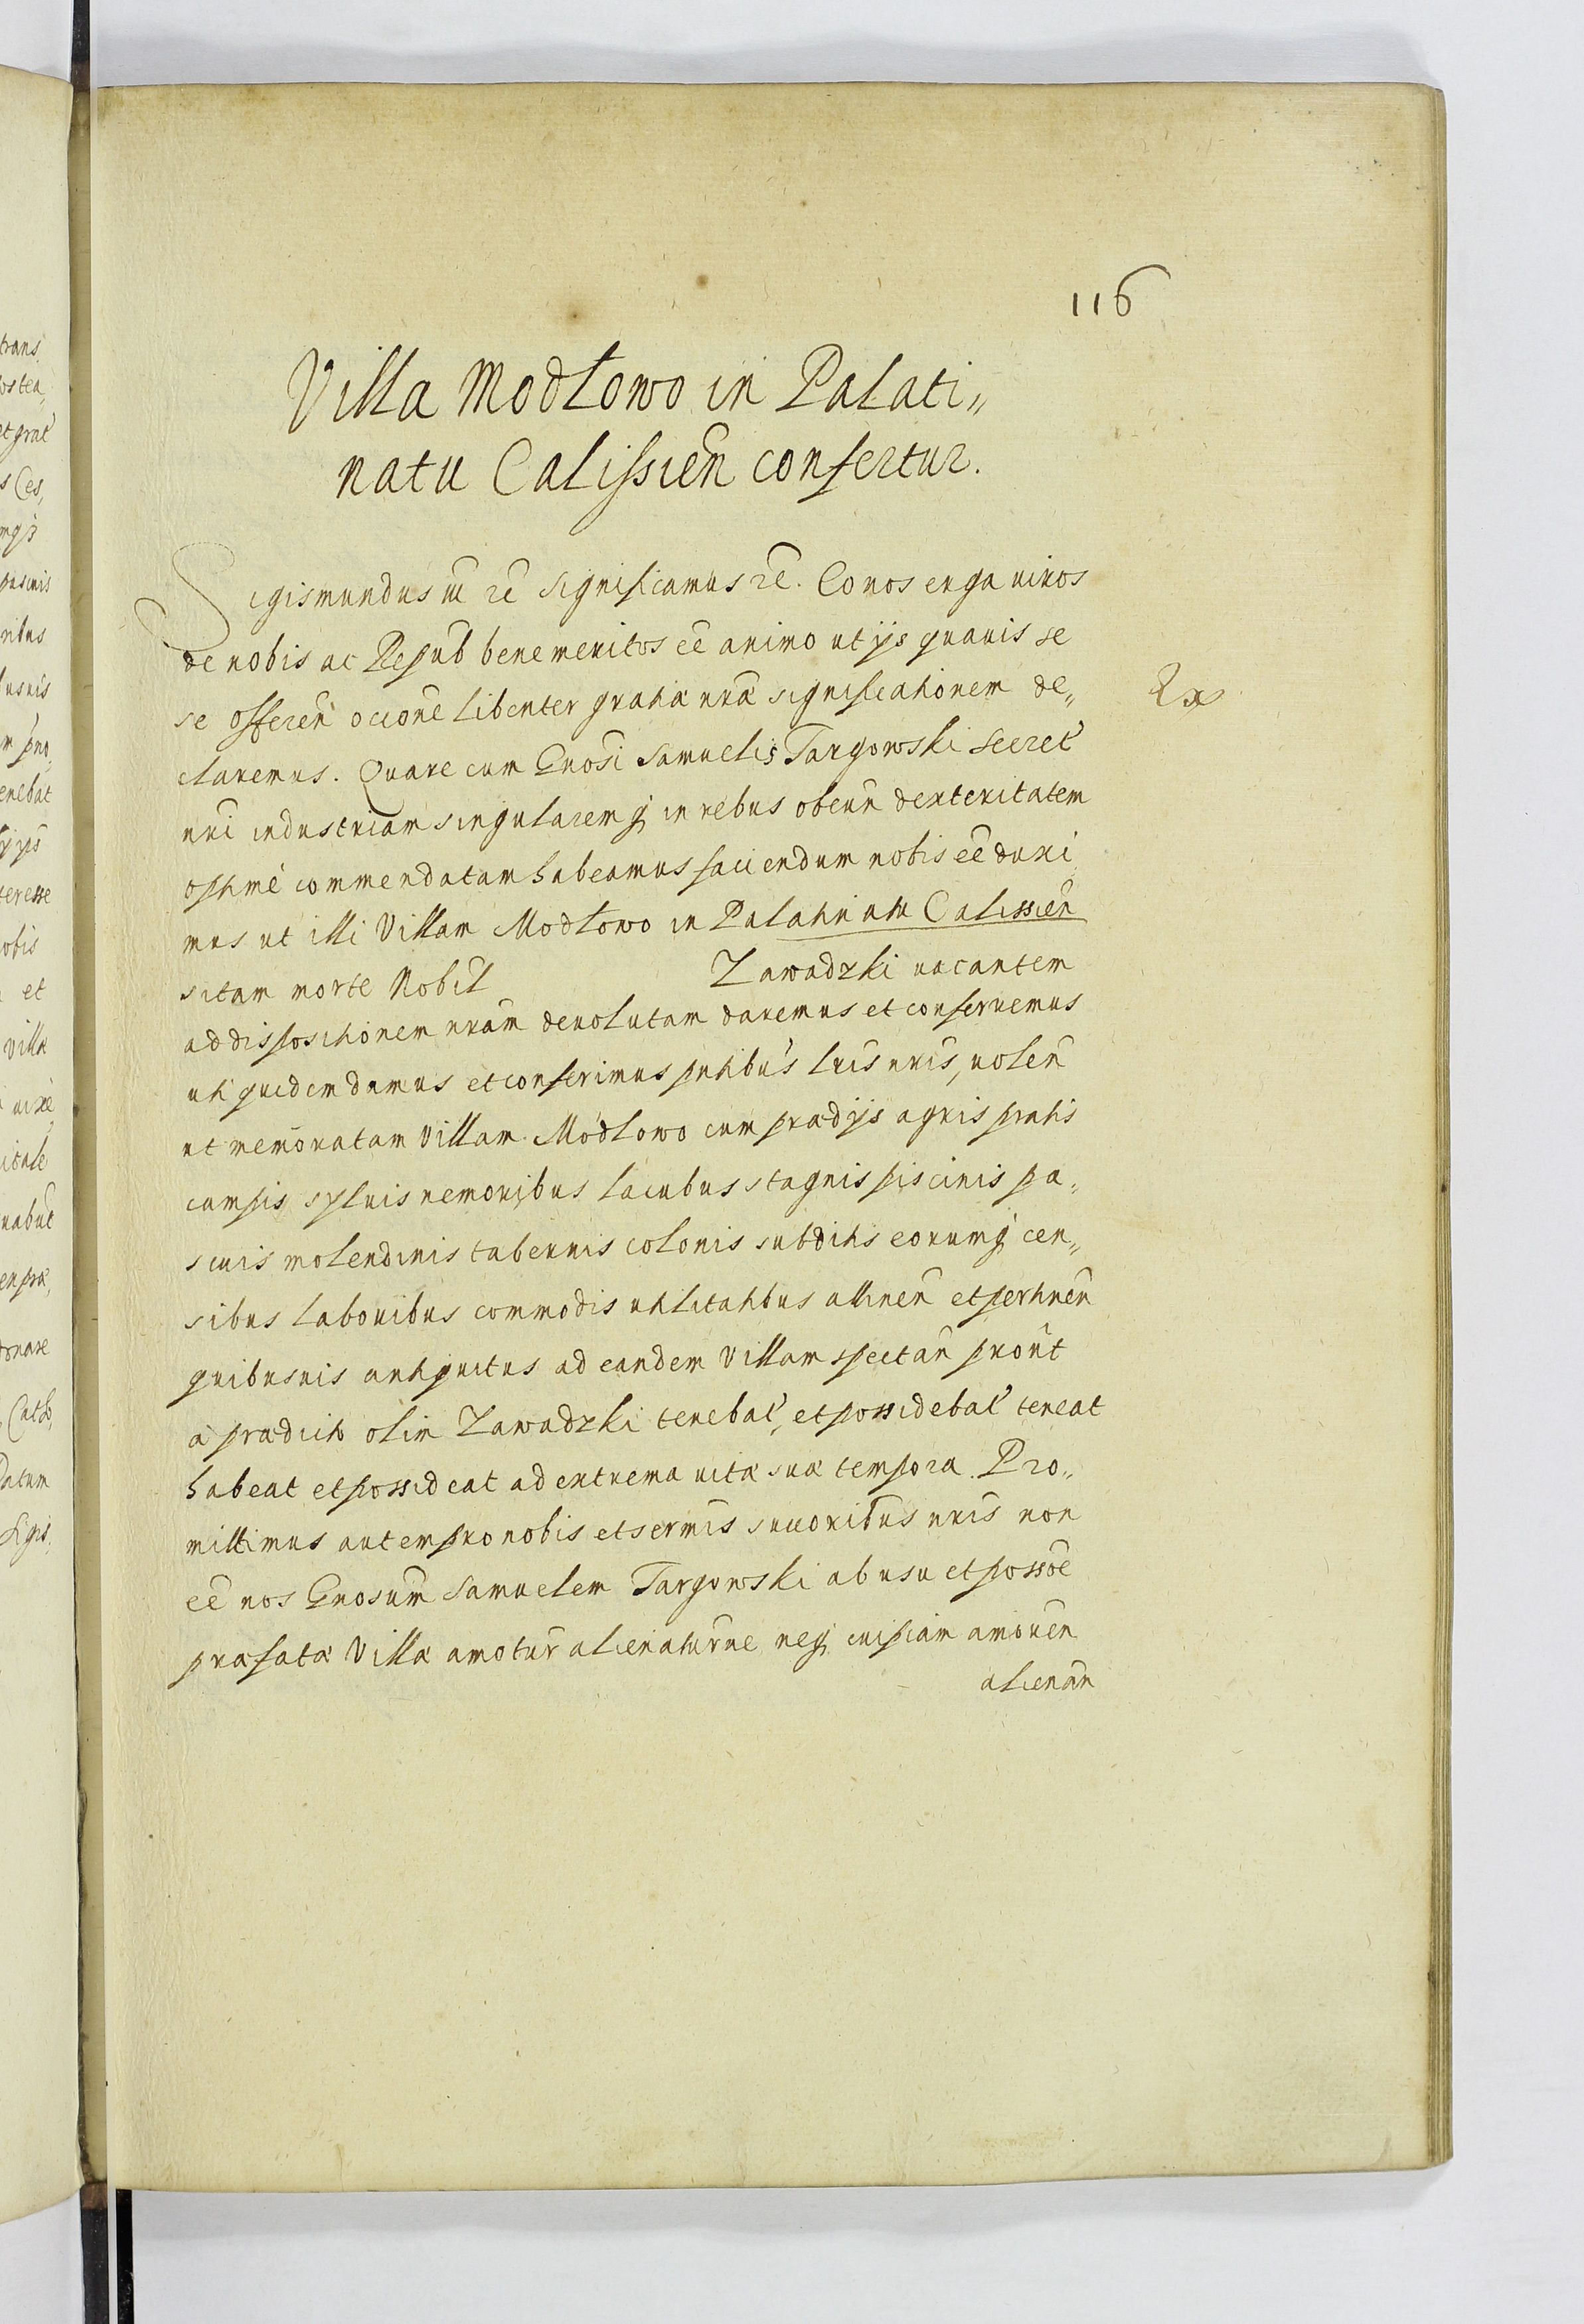 116
Villa Modłowo in Palati„
natu Calissień confertur.
Sigismundus III rc̃ significamus rc̃. Eo nos erga uiros
de nobis ac Repub̃ benemeritos eẽ animo ut ijs quauis se
se offereñ occione libenter gratiæ nr̃æ significationem de„
claremus. Quare cum Gnosi Samuelis Targowski Secret̃
nri industriam singularemq; in rebus obeuñ dexteritatem
optimè commendatam habeamus faciendum nobis eẽ duxi
mus ut illi Villam Modłowo in Palatinatu Calissień
sitam morte Nobil Zawadzki uacantem
ad dispositionem nram̃ deuolutam daremus et conferremus
uti quidem damus et conferimus pntibus lris nris, uoleñ
ut memoratam Villam Modłowo cum prædijs agris pratis
campis syluis nemoribus lacubus stagnis piscinis pa„
scuis molendinis tabernis colonis subditis eorumq; cen„
sibus laboribus commodis utilitatibus attineñ et pertineñ
quibusuis antiquitus ad eandem Villam spectañ prout
à prædicto olim Zawadzki tenebat̃, et possidebat̃ teneat
habeat et possideat ad extrema uitæ suæ tempora. Pro„
mittimus autem pro nobis et sermis succoribus nris non
eẽ nos Gnosum Samuelem Targowski ab usu et possoẽ
præfatæ Villæ amotur̃ alienatur̃ue neq; cuipiam amoueñ
alienañ